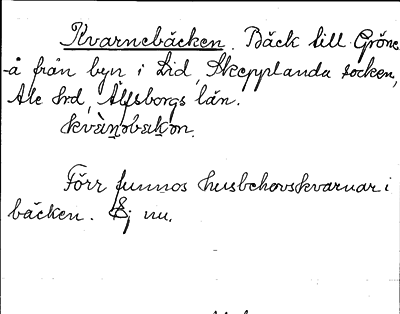 Kvarnebäcken. Bäck till Gröne
-å från byn i Lid, Skepplanda socken,
Ale hrd, Älfsborgs län.
kvànəbækən.
Förr funnos husbehovskvarnar i
bäcken. Ej nu.